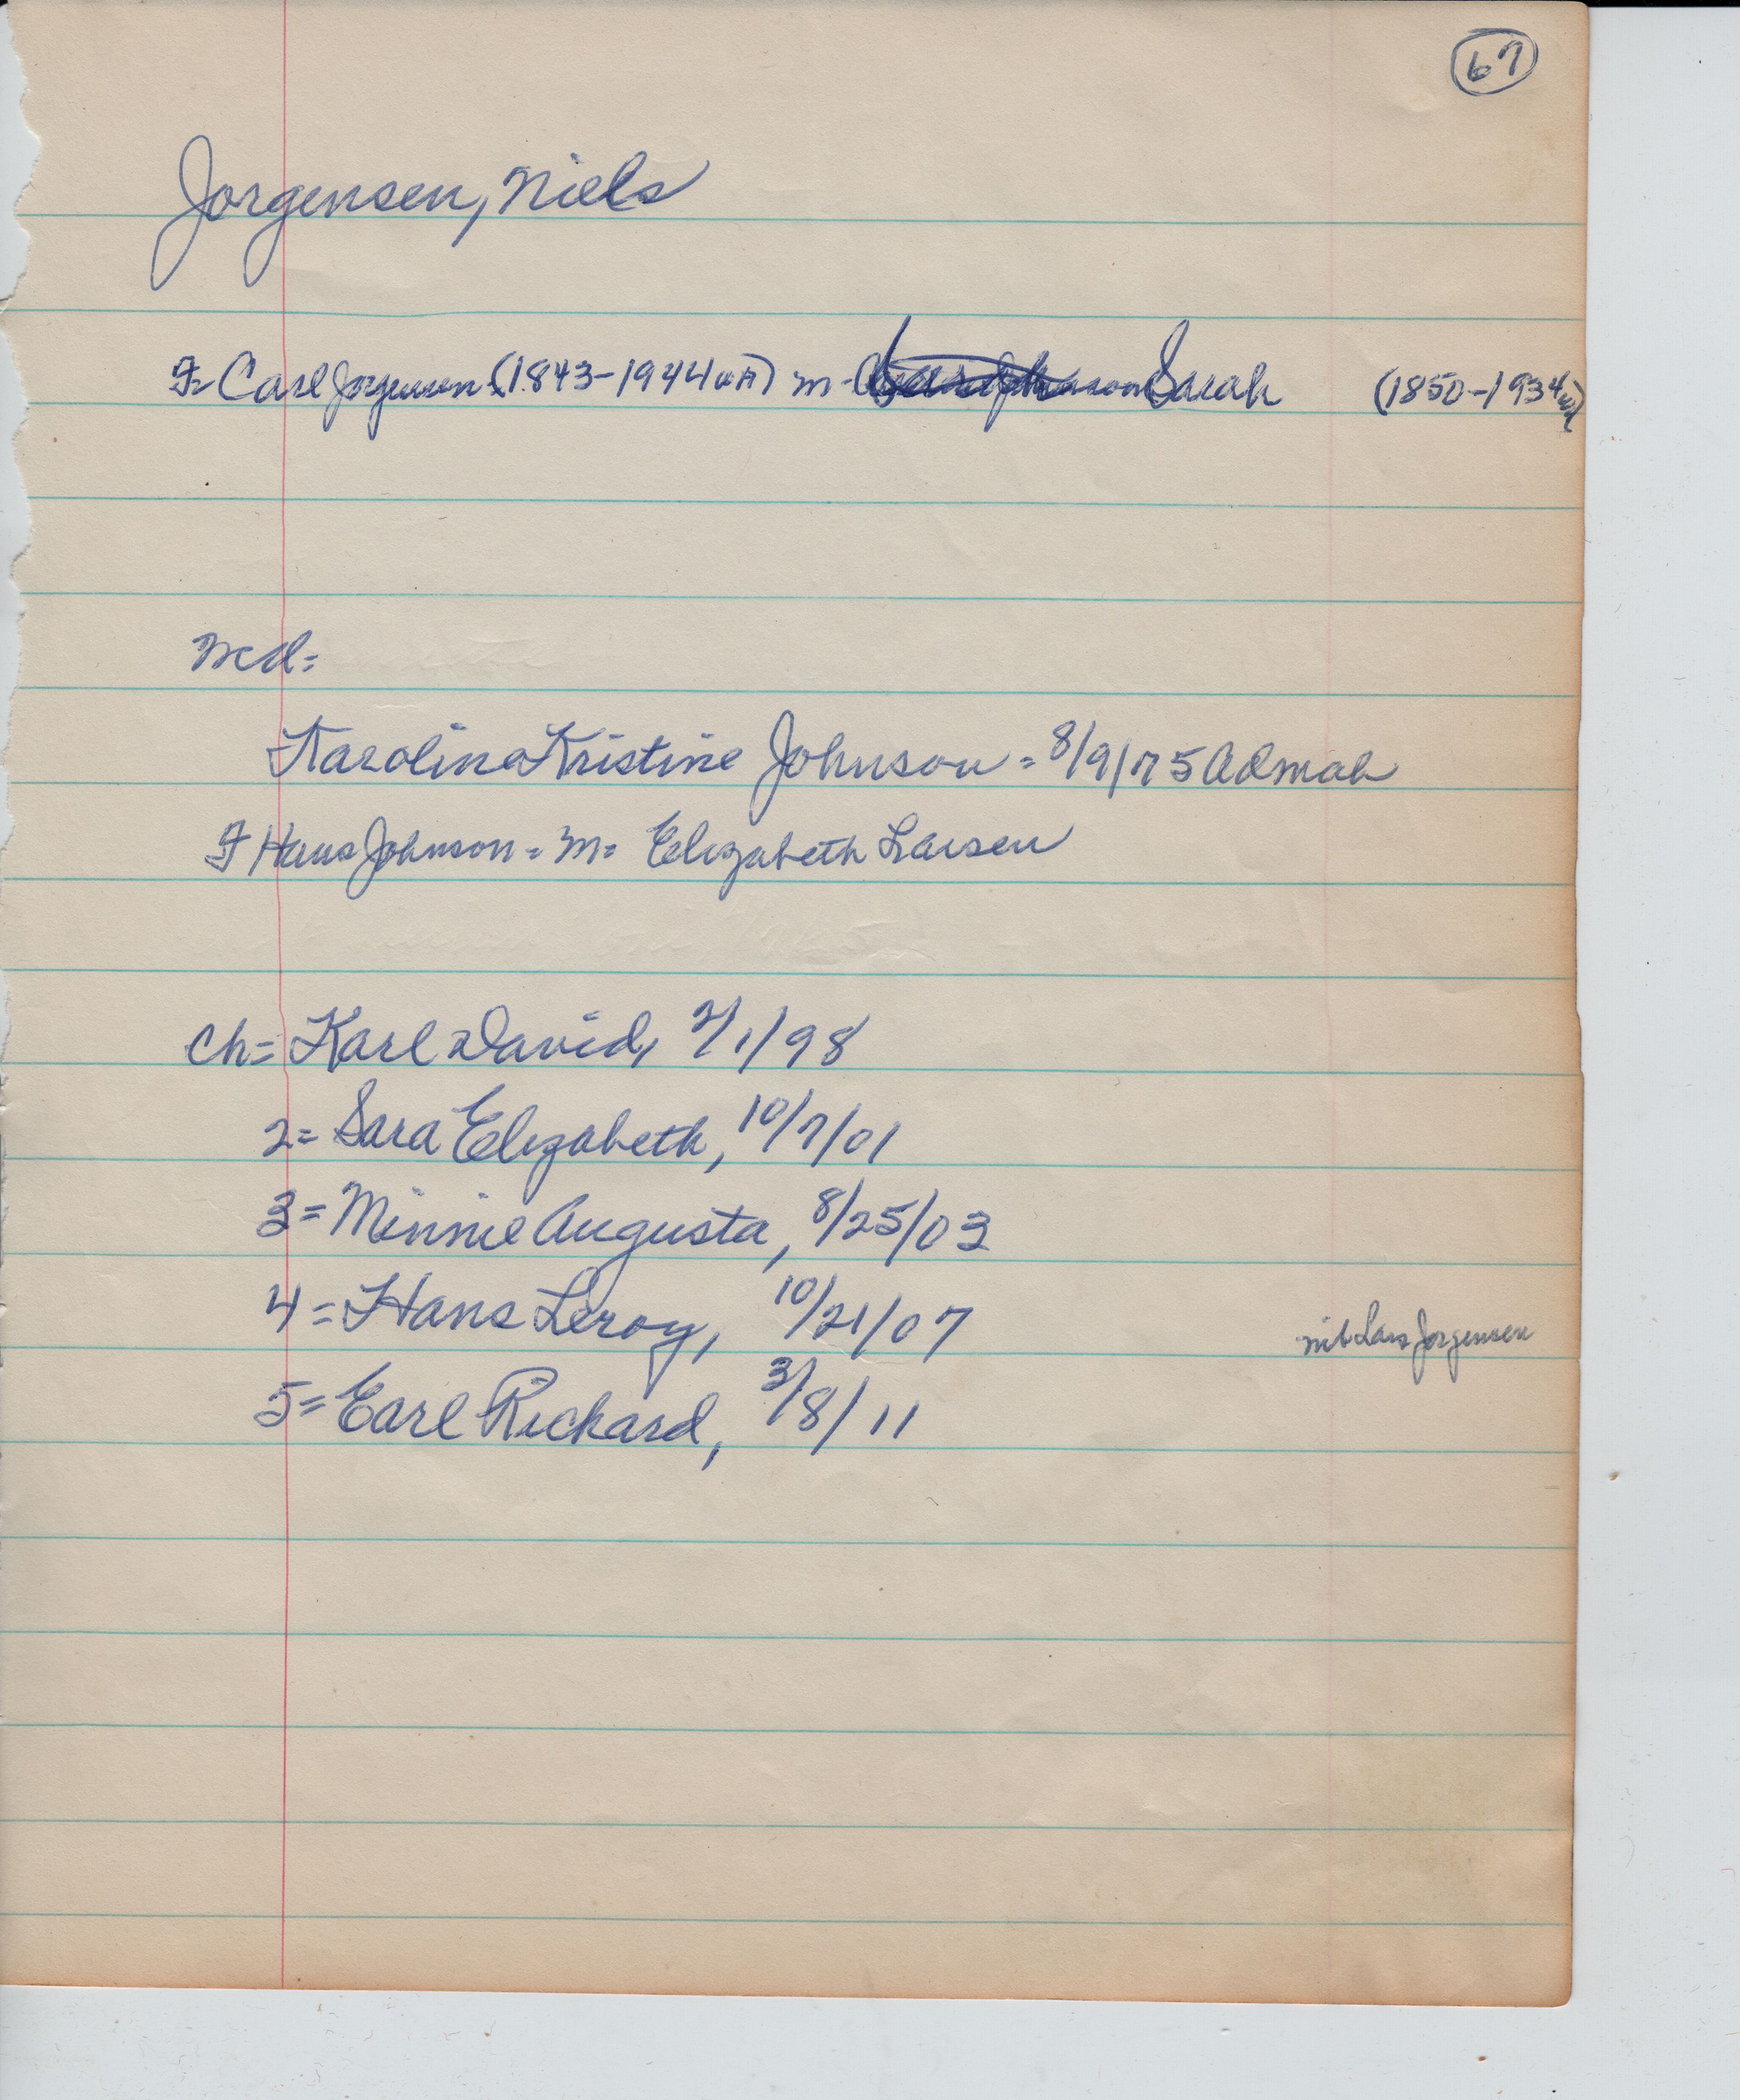 67
Jorgensen, Niels
F= Carl Jorgensen (1843-1944 WA) m- Sarah (1850-1934
Md=
Karoline Kristine Johnson = 8/9/75 Admah
F Hans Johnson = M= Elizabeth Larsen
Ch= Karl David, 2/1/98
2= Sara Elizabeth, 10/7/01
3= Minnie Augusta, 8/25/03
4= Hans Leroy, 10/21/07
Lars Jorgensen
5= Earl Richard, 3/8/11